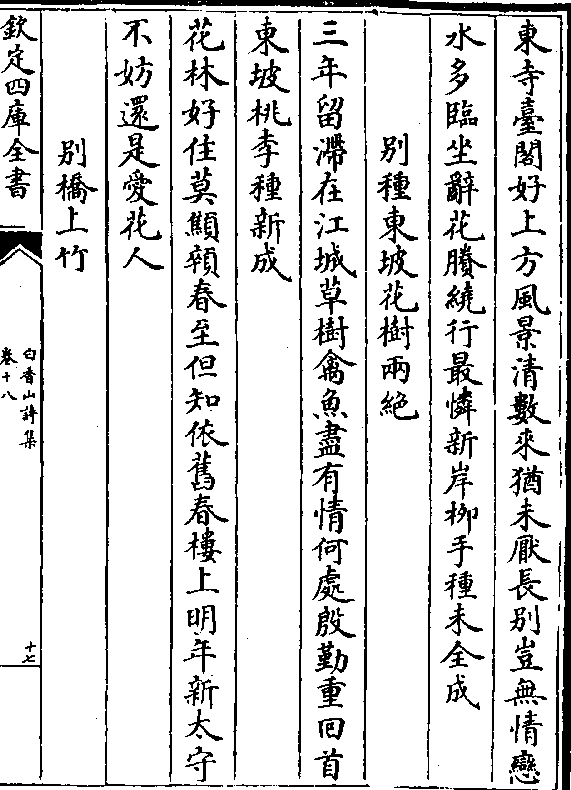 東寺臺閣好上方風景清數來猶未厭長别豈無情戀
水多臨坐辭花賸繞行最憐新岸柳手種未全成
别種東坡花樹兩絶
三年留滯在江城草樹禽魚盡有情何處殷勤重回首
東坡桃李種新成
花林好住莫顦顇春至但知依舊春樓上明年新太守
不妨還是愛花人
别橋上竹
欽定四庫全書
白香山詩集
卷十八
十七